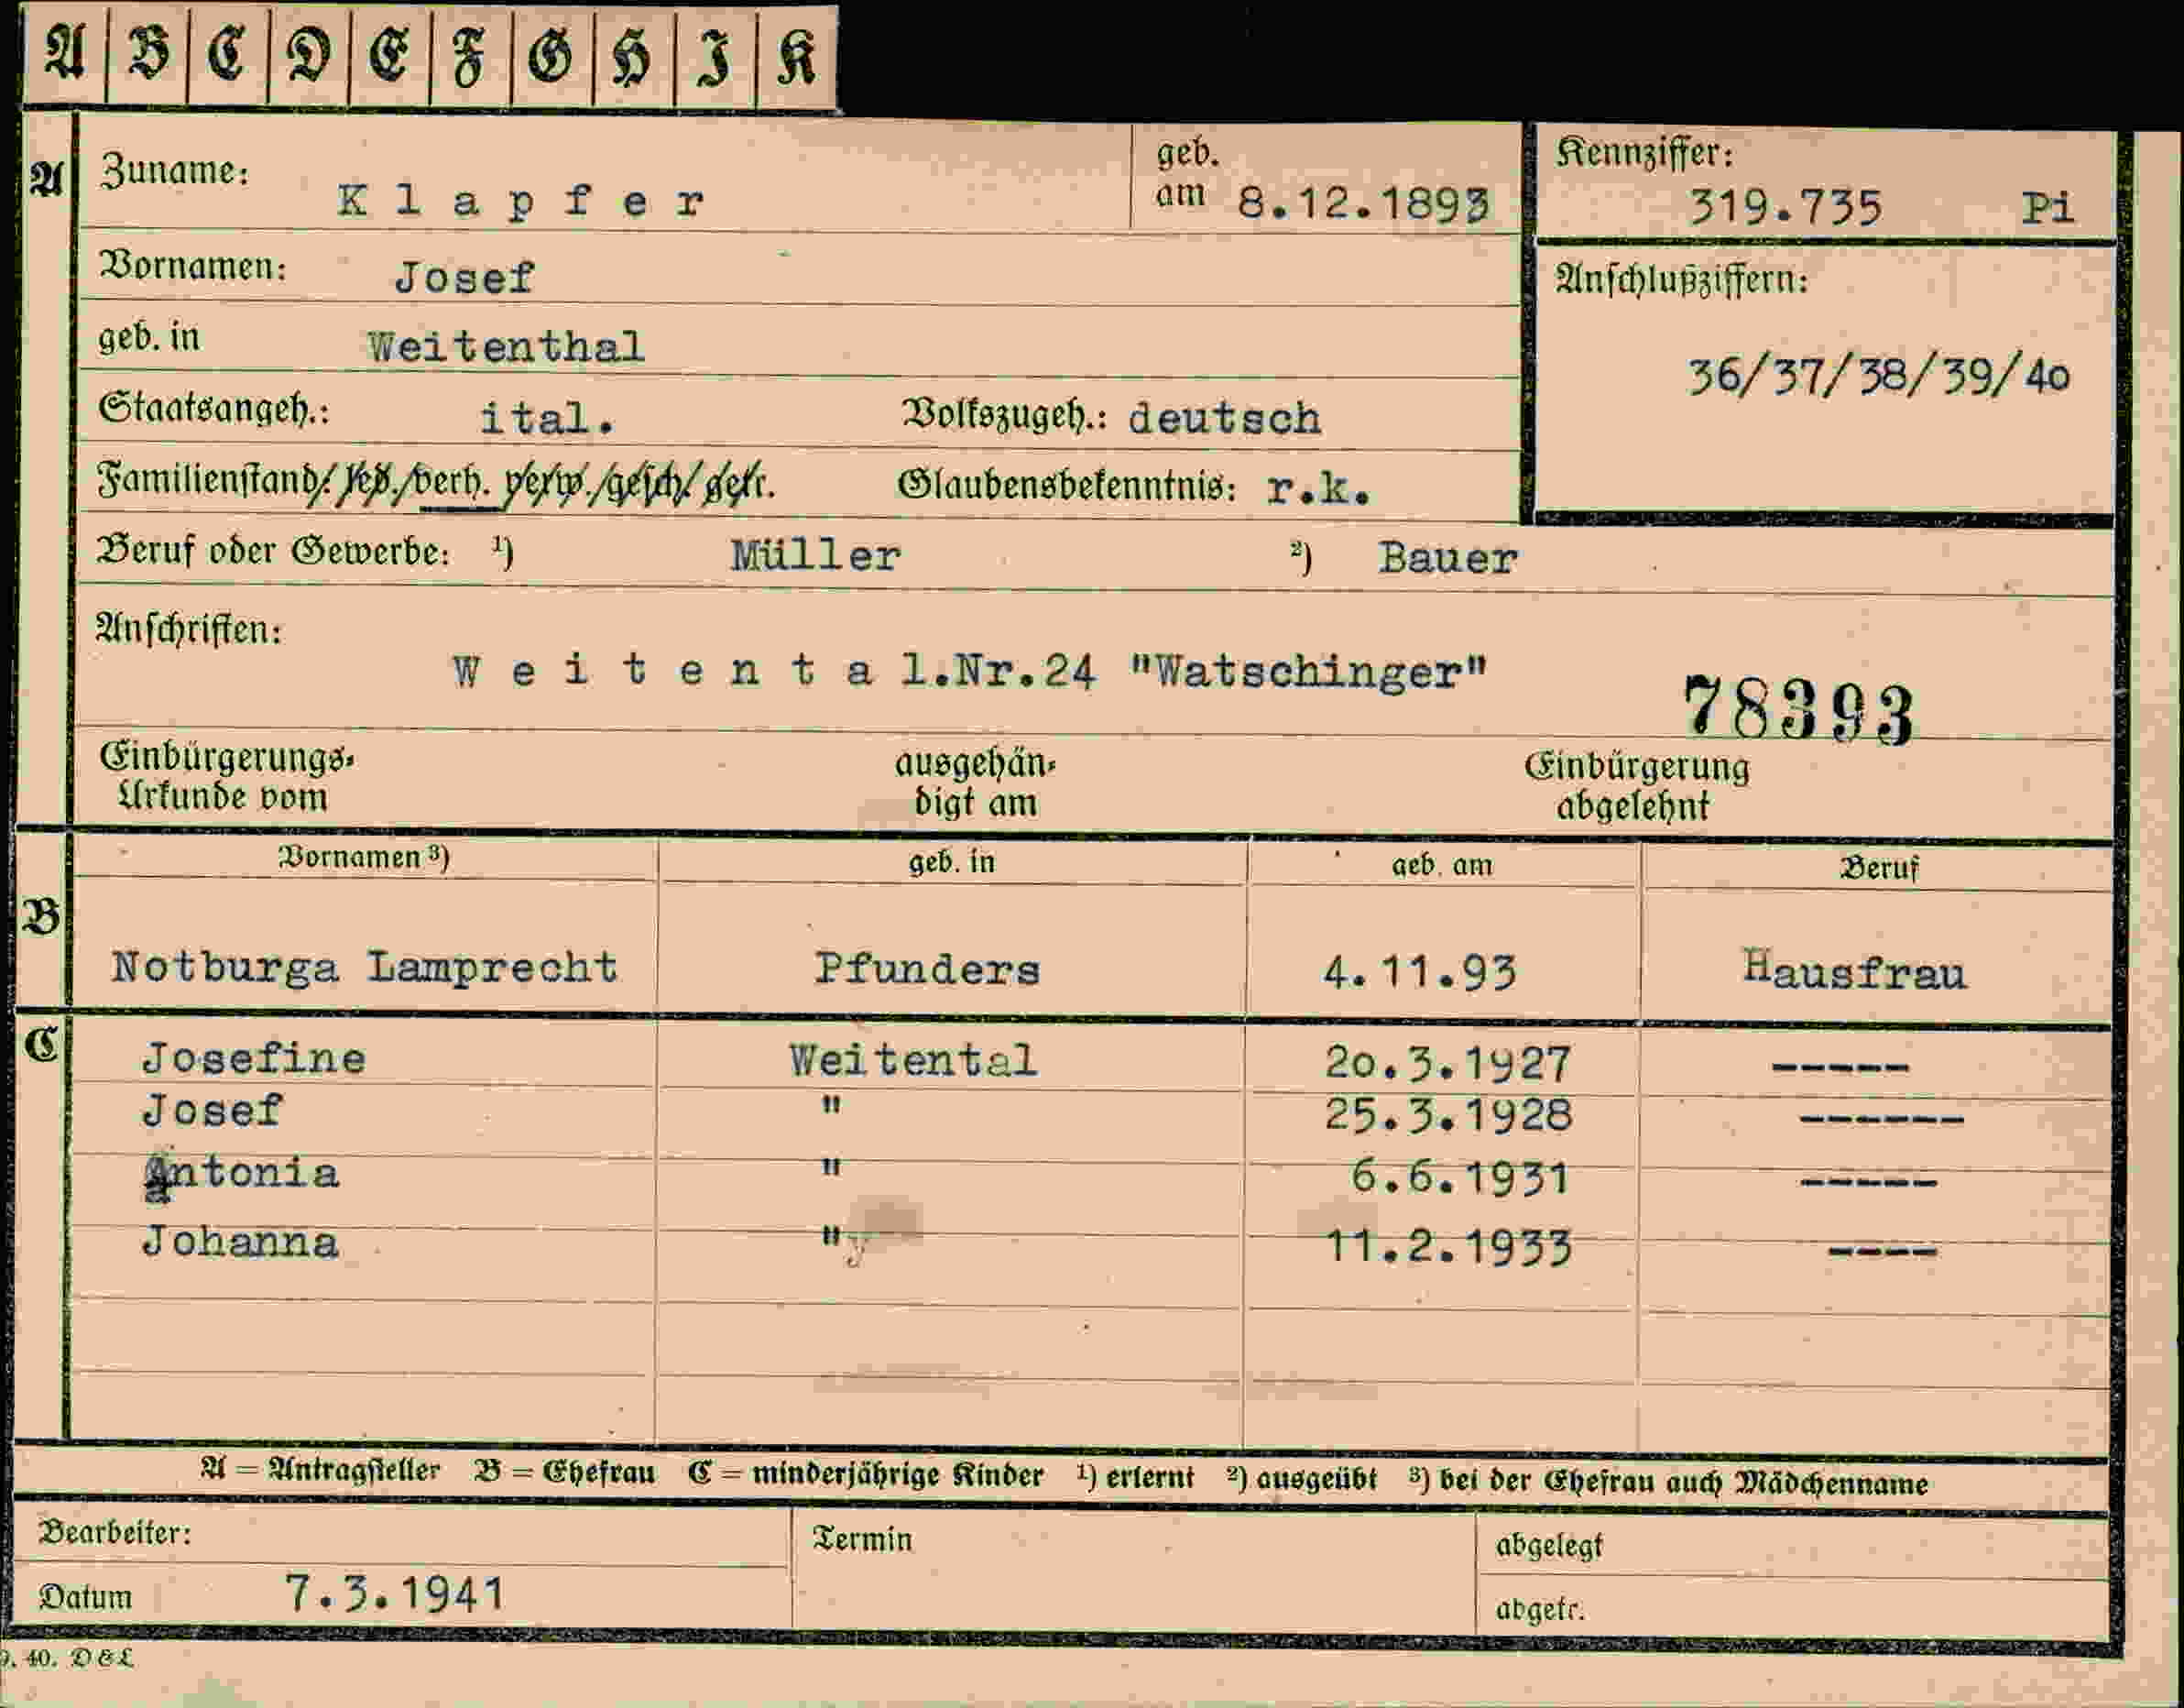 A B C D E F G H I K
A Zuname: Klapfer geb. am 8.12.1893 Kennziffer: 319.735 Pi
Vornamen: Josef Anschlußziffern:
geb. in Weitenthal 36/37/38/39/40
Staatsangeh.: ital. Volkszugeh.: deutsch
Familienstand: led./verh. verw./gesch./getr. Glaubensbekenntnis: r.k.
Beruf oder Gewerbe: ¹) Müller ²) Bauer
Anschriften:
Weitental.Nr.24 "Watschinger" 78393
Einbürgerungs- ausgehän- Einbürgerung
Urkunde vom digt am abgelehnt
Vornamen ³) geb. in geb. am Beruf
B
Notburga Lamprecht Pfunders 4.11.93 Hausfrau
C Josefine Weitental 20.3.1927 -----
Josef " 25.3.1928 ------
Antonia " 6.6.1931 -----
Johanna " 11.2.1933 ----
A = Antragsteller B = Ehefrau C = minderjährige Kinder ¹) erlernt ²) ausgeübt ³) bei der Ehefrau auch Mädchenname
Bearbeiter: Termin abgelegt
Datum 7.3.1941 abgetr.
9. 40. D&L